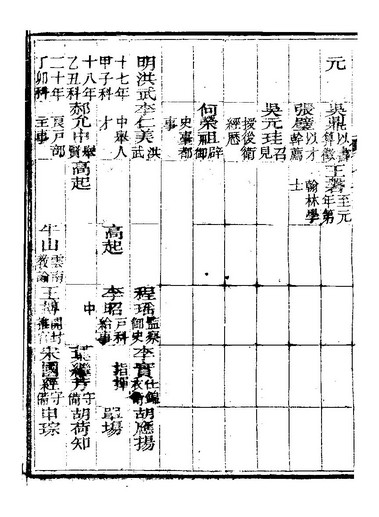 元 吳鼎 以壽算徵 王著 至元年第
張璧 以才幹薦 翰林學士
吳元珪 召見授後衛經歷
何榮祖 辟御史臺都事
明洪武 李仁美 洪武 程瑀 監察御史 李實 仕錦衣衛 胡應揚
十七年甲子科 中舉人才 高起 李招 戶科給事中 指揮 單場
十八年乙丑科 郝允中 舉賢 高起 繼芳 守備 胡荷知
二十年丁卯科 戶部主事 牛山 雲南教諭 王溥 開封推官 朱國經 守備 申琮